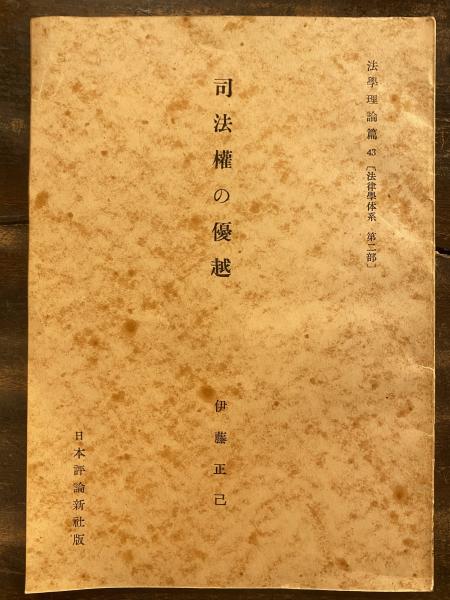 法學理論篇 43 〔法律學体系 第二部〕
司法權の優越
伊藤正己
日本評論新社版